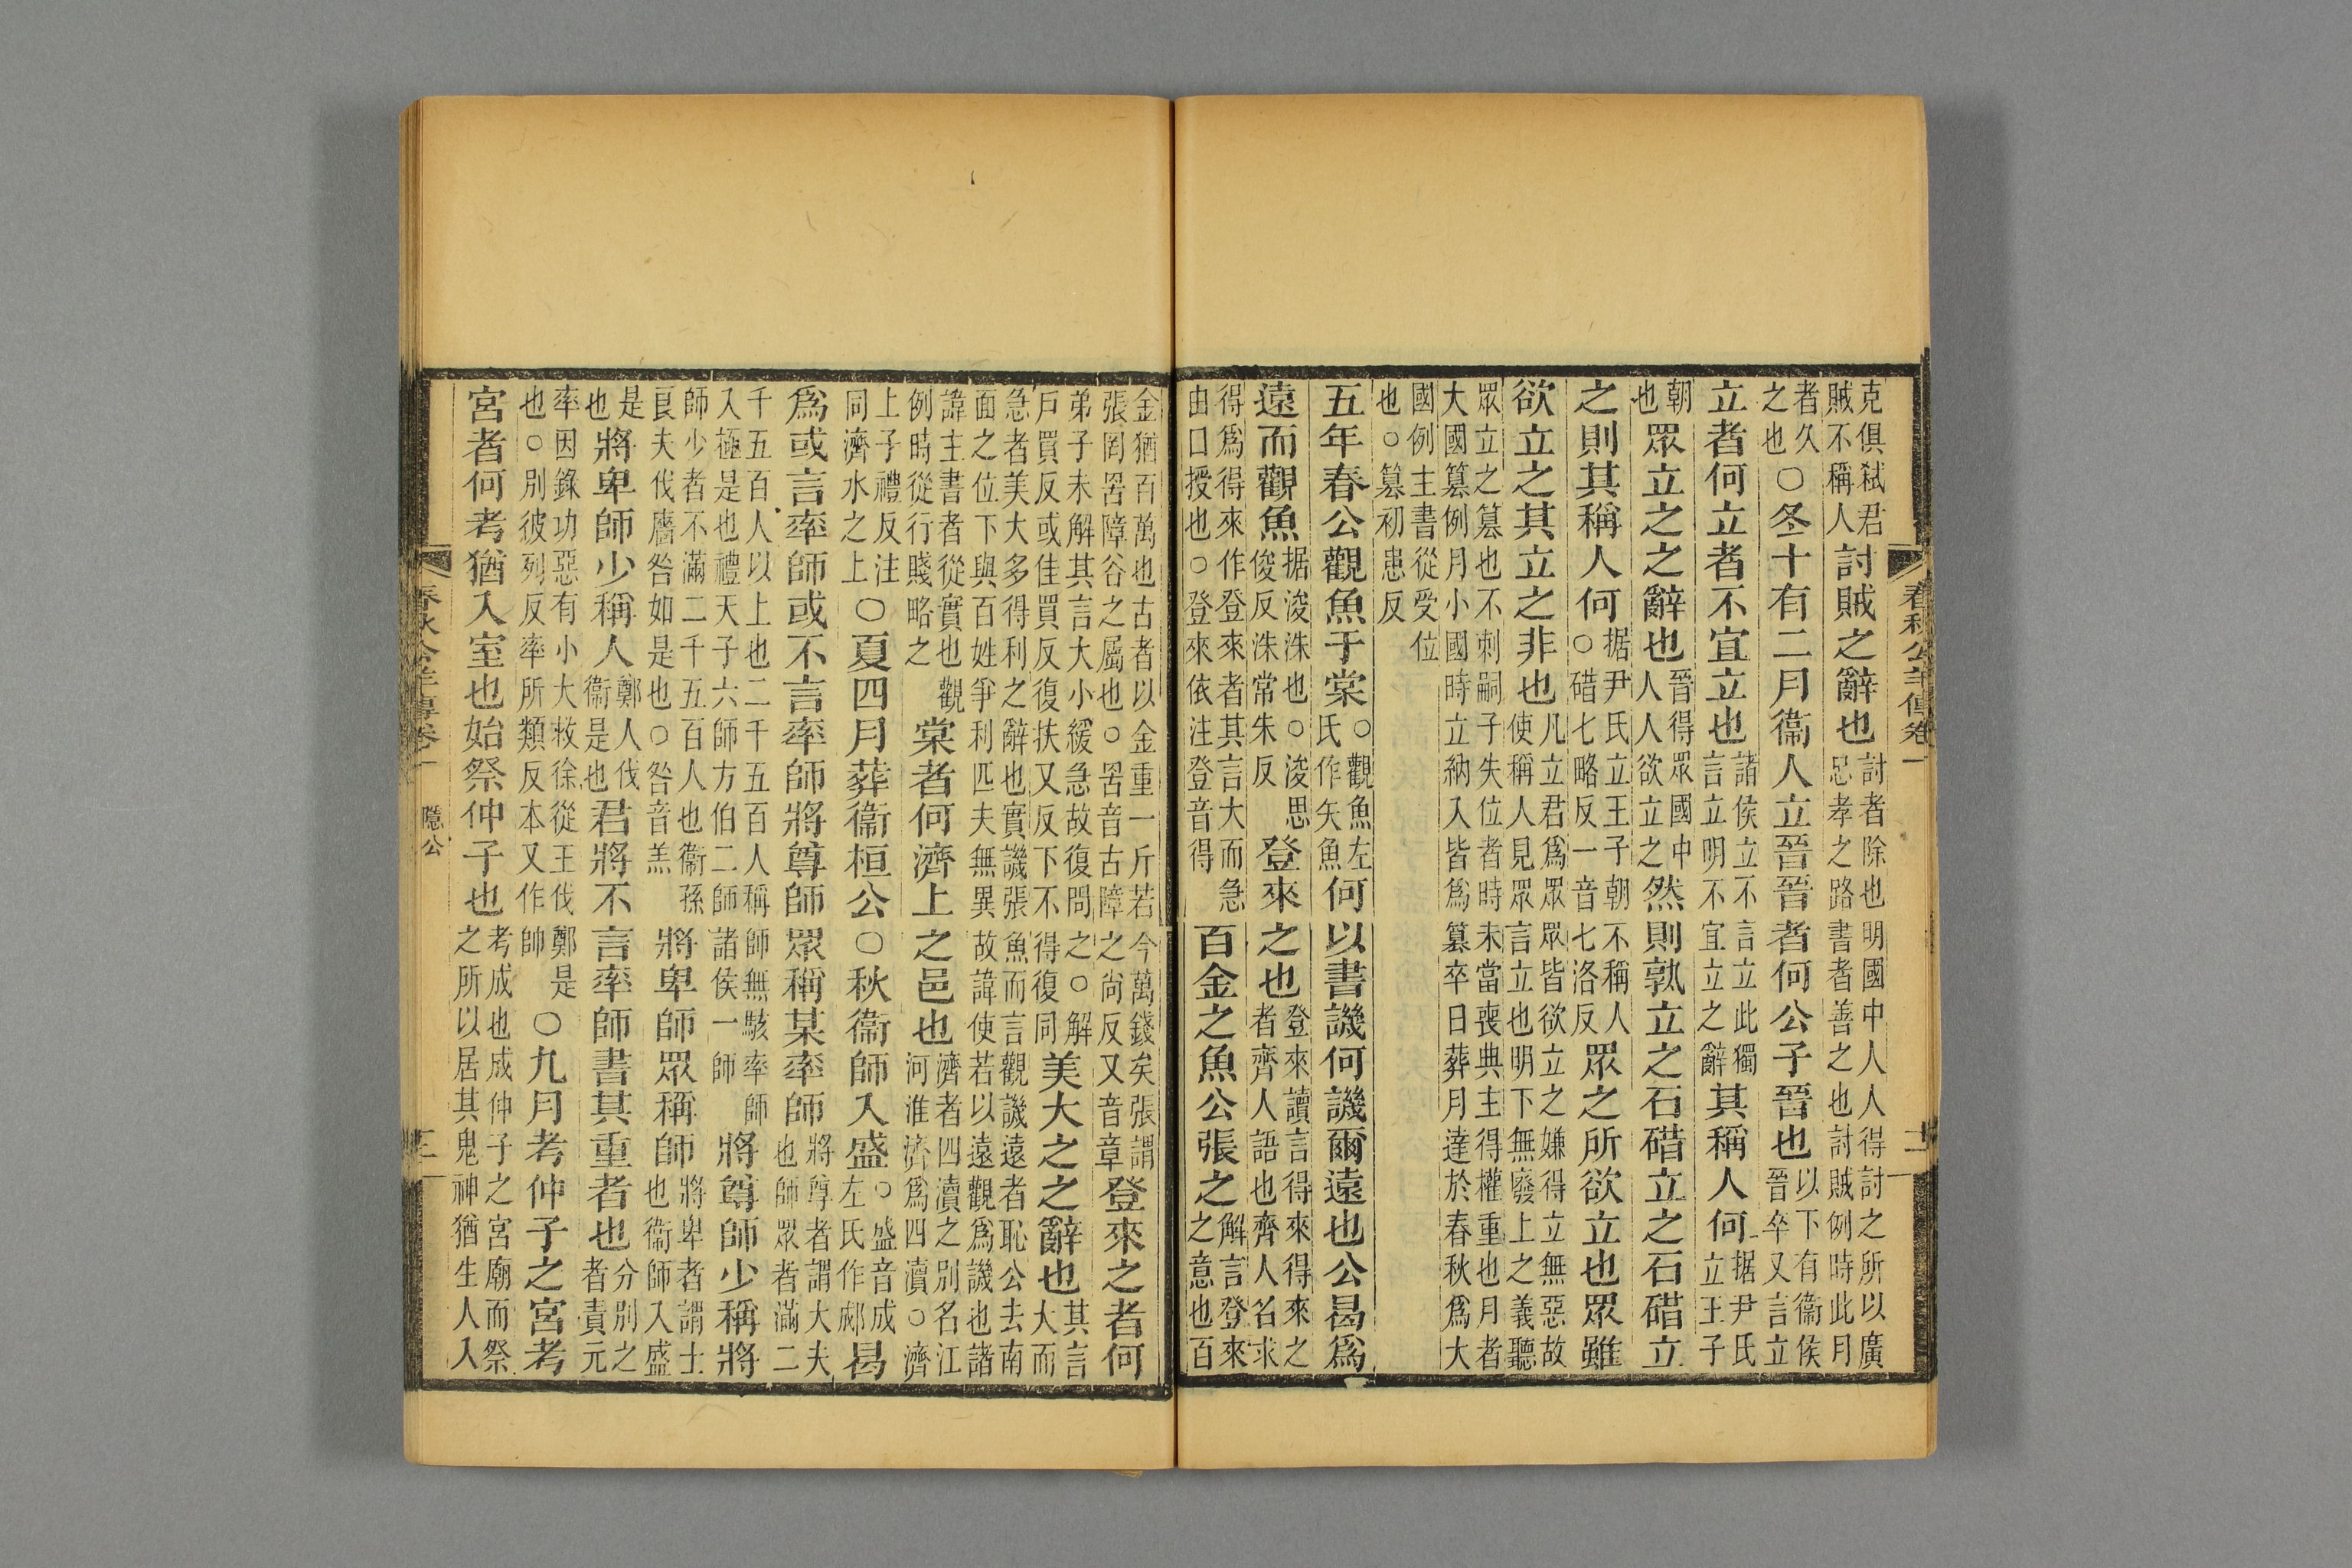 春秋公羊傳卷一　十一
克俱弒君賊不稱人討賊之辭也討者除也明國中人人得討之所以廣忠孝之路書者善之也討賊例時此月
者久之也〇冬十有二月衞人立晉晉者何公子晉也以下有衞侯晉卒又言立
立者何立者不宜立也諸侯立不言立此獨言立明不宜立之辭其稱人何据尹氏立王子
朝也眾立之之辭也晉得眾國中人人欲立之然則孰立之石碏立之石碏立
之則其稱人何据尹氏立王子朝不稱人○碏七略反一音七洛反眾之所欲立也眾雖
欲立之其立之非也凡立君爲眾眾皆欲立之嫌得立無惡故使稱人見眾言立也明下無廢上之義聽
眾立之篡也不刺嗣子失位者時未當喪典主得權重也月者大國篡例月小國時立納入皆爲篡卒日葬月達於春秋爲大
國例主書從受位也○篡初患反
五年春公觀魚于棠○觀魚左氏作矢魚何以書譏何譏爾遠也公曷爲
遠而觀魚据浚洙也○浚思俊反洙常朱反登來之也登來讀言得來得來之者齊人語也齊人名求
得爲得來作登來者其言大而急由口授也○登來依注登音得百金之魚公張之解言登來之意也百
金猶百萬也古者以金重一斤若今萬錢矣張謂張罔罟障谷之屬也○罟音古障之尚反又音章登來之者何
弟子未解其言大小緩急故復問之○解戶買反或佳買反復扶又反下不得復同美大之之辭也其言大而
急者美大多得利之辭也實譏張魚而言觀譏遠者恥公去南面之位下與百姓爭利匹夫無異故諱使若以遠觀爲譏也諸
諱主書者從實也觀例時從行賤略之棠者何濟上之邑也濟者四瀆之別名江河淮濟爲四瀆○濟
上子禮反注同濟水之上〇夏四月葬衞桓公〇秋衞師入盛○盛音成左氏作郕曷
爲或言率師或不言率師將尊師眾稱某率師將尊者謂大夫也師眾者滿二
千五百人以上也二千五百人稱師無駭率師入極是也禮天子六師方伯二師諸侯一師將尊師少稱將
師少者不滿二千五百人也衞孫良夫伐廧咎如是也○咎音羔將卑師眾稱師將卑者謂士也衞師入盛
是也將卑師少稱人鄭人伐衞是也君將不言率師書其重者也分別之者責元
率因錄功惡有小大救徐從王伐鄭是也○別彼列反率所類反本又作帥〇九月考仲子之宮考
宮者何考猶入室也始祭仲子也考成也成仲子之宮廟而祭之所以居其鬼神猶生人入
春秋公羊傳卷一　隱公